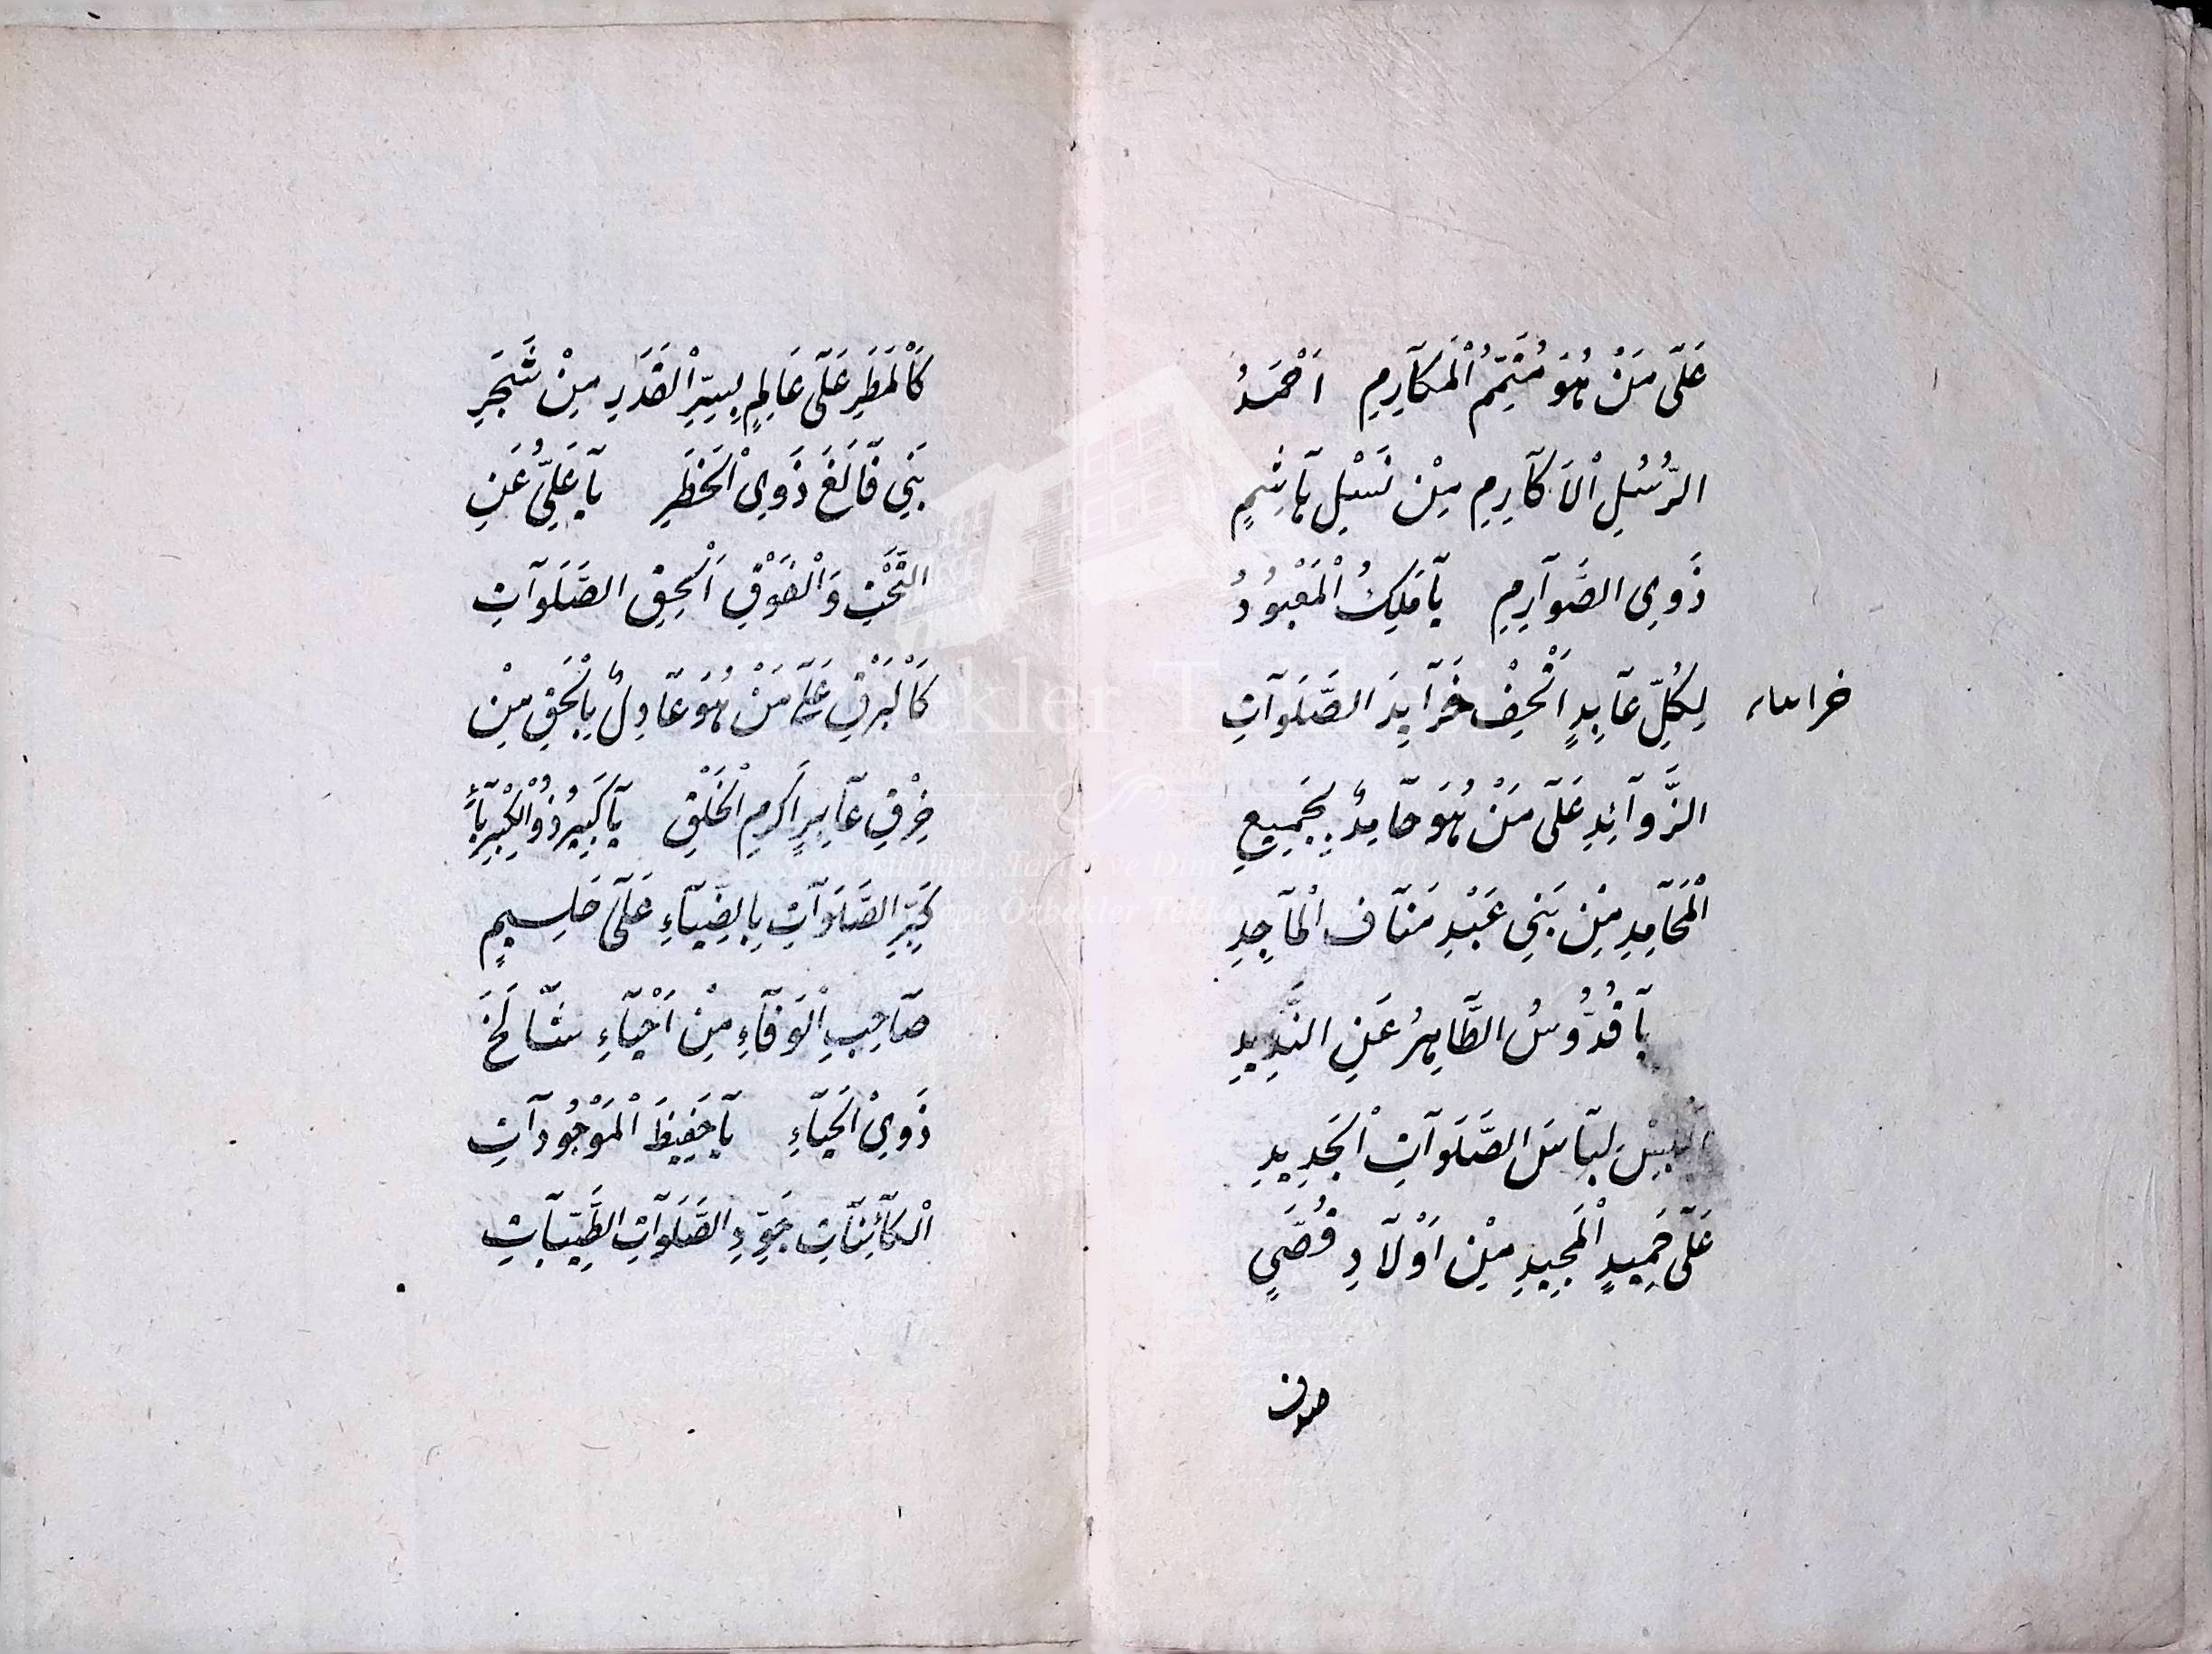 عَلَٓى مَنْ هُوَ مُتَمِّمُ الْمَكَٓارِمِ اَحْمَدُ
الرُّسُلِ الْاَكَٓارِمِ مِنْ نَسْلِ هَٓاشِمٍ
ذَوِى الصَّوَٓارِمِ يَٓا مَلِكُ الْمَعْبُودُ
لِكُلِّ عَٓابِدٍ اَتْحِفْ خَرَٓايِدَ الصَّلَوَٓاتِ
الزَّوَٓائِدِ عَلَٓى مَنْ هُوَ حَٓامِدٌ بِجَمِيعِ
الْمَحَٓامِدِ مِنْ بَنِي عَبْدِ مَنَٓاف الْمَٓاجِدِ
يَٓا قُدُّوسُ الطَّٓاهِرُ عَنِ النَّدِيدِ
اَلْبِسْ لِبَٓاسَ الصَّلَوَٓاتِ الْجَدِيدِ
عَلَٓى حَمِيدٍ الْمَجِيدِ مِنْ اَوْلَٓادِ قُصَيٍ
كَالْمَطَرِ عَلَٓى عَالِمٍ بِسِرِّ الْقَدَرِ مِنْ شَجَرِ
بَنِي فَٓالَغَ ذَوِى الْخَطَرِ يَٓا عَلِيُّ عَنِ
التَّحْتِ وَالْفَوْقِ اَلْحِقِ الصَّلَوَٓاتِ
كَالْبَرْقِ عَلَٓى مَنْ هُوَ عَٓادِلٌ بِالْحَقِ مِنْ
خِرْقِ عَٓابِرٍ اَكْرَمِ الْخَلْقِ يَٓا كَبِيرُ ذُو الْكِبْرِيَٓاءِ
كَبِّرِ الصَّلَوَٓاتِ بِالضِّيَٓاءِ عَلَٓى حَلِيمٍ
صَٓاحِبِ الْوَفَٓاءِ مِنْ اَحْيَٓاءِ شَٓالَخَ
ذَوِى الْحَيَٓاءِ يَٓا حَفِيظَ الْمَوْجُودَٓاتِ
الْكَٓائِنَٓاتِ جَوِّدِ الصَّلَوَٓاتِ الطَّيِّبَٓاتِ